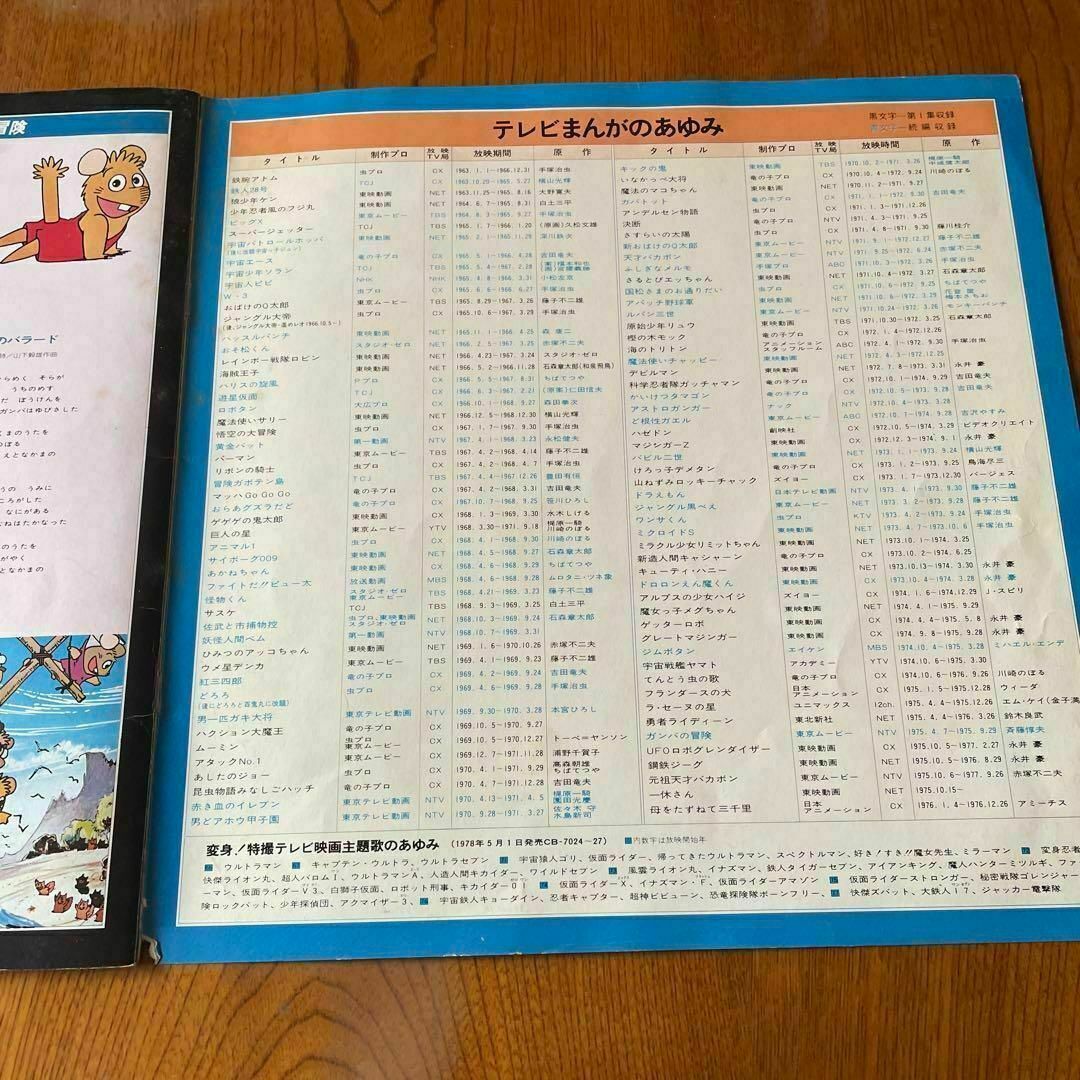 冒険
のバラード
詩/山下毅雄作曲
からめく　そらが
うちのめす
だ　ぼうけんを
ガンバはゆびさした
くまのうたを
のぼる
えとなかまの
うの　うみに
ころがした
なにがある
なねはたかなった
のうたを
がやく
となかまの
テレビまんがのあゆみ
黒文字―第1集収録
青文字―続編収録
タイトル　制作プロ　放映TV局　放映期間　原作
鉄腕アトム　虫プロ　CX　1963.1.1―1966.12.31　手塚治虫
鉄人28号　TCJ　CX　1963.10.20―1965.5.27　横山光輝
狼少年ケン　東映動画　NET　1963.11.25―1965.8.16　大野寛夫
少年忍者風のフジ丸　東映動画　NET　1964.6.7―1965.8.31　白土三平
ビッグX　東京ムービー　TBS　1964.8.3―1965.9.27　手塚治虫
スーパージェッター　TCJ　TBS　1965.1.7―1966.1.20　(原画)久松文雄
宇宙パトロールホッパ　東映動画　NET　1965.2.1―1965.11.29　深川鉄次
宇宙エース　竜の子プロ　CX　1965.5.1―1966.4.28　吉田竜夫
宇宙少年ソラン　TCJ　TBS　1965.5.4―1967.2.28
宇宙人ピピ　NHK　NHK　1965.4.8―1966.3.31　小松左京
W・3　虫プロ　CX　1965.6.6―1966.6.27　手塚治虫
おばけのQ太郎　東京ムービー　TBS　1965.8.29―1967.3.26　藤子不二雄
ジャングル大帝　虫プロ　CX　1965.10.6―1967.3.29　手塚治虫
(後、ジャングル大帝・進めレオ1966.10.5〜)
ハッスルパンチ　東映動画　NET　1965.11.1―1966.4.25　森康二
おそ松くん　スタジオ・ゼロ　NET　1966.2.5―1967.3.25　赤塚不二夫
レインボー戦隊ロビン　東映動画　NET　1966.4.23―1967.3.24　スタジオ・ゼロ
海賊王子　東映動画　NET　1966.5.2―1966.11.28　石森章太郎(和泉飛鳥)
ハリスの旋風　Pプロ　CX　1966.5.5―1967.8.31　ちばてつや
遊星仮面　TCJ　CX　1966.6.3―1967.2.21　(原案)仁田信夫
ロボタン　大広プロ　CX　1966.10.4―1968.9.27　森田拳次
魔法使いサリー　東映動画　NET　1966.12.5―1968.12.30　横山光輝
悟空の大冒険　虫プロ　CX　1967.1.7―1967.9.30　手塚治虫
黄金バット　第一動画　NTV　1967.4.1―1968.3.23　永松健夫
パーマン　東京ムービー　TBS　1967.4.2―1968.4.14　藤子不二雄
リボンの騎士　虫プロ　CX　1967.4.2―1968.4.7　手塚治虫
冒険ガボテン島　TCJ　TBS　1967.4.4―1967.12.26　豊田有恒
マッハGo Go Go　竜の子プロ　CX　1967.4.2―1968.3.31　吉田竜夫
おらぁグズラだど　竜の子プロ　CX　1967.10.7―1968.9.25　笹川ひろし
ゲゲゲの鬼太郎　東映動画　CX　1968.1.3―1969.3.30　水木しげる
巨人の星　東京ムービー　YTV　1968.3.30―1971.9.18　梶原一騎　川崎のぼる
アニマル1　虫プロ　CX　1968.4.1―1968.9.30　川崎のぼる
サイボーグ009　東映動画　NET　1968.4.5―1968.9.27　石森章太郎
あかねちゃん　東映動画　CX　1968.4.6―1968.9.29　ちばてつや
ファイトだ!!ピュー太　放送動画　MBS　1968.4.6―1968.9.28　ムロタニ・ツネ象
怪物くん　スタジオ・ゼロ　東京ムービー　TBS　1968.4.21―1969.3.23　藤子不二雄
サスケ　TCJ　TBS　1968.9.3―1969.3.25　白土三平
佐武と市捕物控　虫プロ、東映動画　スタジオ・ゼロ　NET　1968.10.3―1969.9.24　石森章太郎
妖怪人間ベム　第一動画　CX　1968.10.7―1969.3.31
ひみつのアッコちゃん　東映動画　NET　1969.1.6―1970.10.26　赤塚不二夫
ウメ星デンカ　東京ムービー　TBS　1969.4.1―1969.9.23　藤子不二雄
紅三四郎　竜の子プロ　CX　1969.4.2―1969.9.24　吉田竜夫
どろろ　虫プロ　CX　1969.4.6―1969.9.28　手塚治虫
(後にどろろと百鬼丸に改題)
男一匹ガキ大将　東京テレビ動画　NTV　1969.9.30―1970.3.28　本宮ひろし
ハクション大魔王　竜の子プロ　CX　1969.10.5―1970.9.27
ムーミン　東京ムービー　虫プロ　CX　1969.10.5―1970.12.27　トーベ=ヤンソン
アタックNo.1　東京ムービー　CX　1969.12.7―1971.11.28　浦野千賀子
あしたのジョー　虫プロ　CX　1970.4.1―1971.9.29　高森朝雄　ちばてつや
昆虫物語みなしごハッチ　竜の子プロ　CX　1970.4.7―1971.9.28　吉田竜夫
赤き血のイレブン　東京テレビ動画　NTV　1970.4.13―1971.4.5　梶原一騎　園田光慶
男どアホウ甲子園　東京テレビ動画　NTV　1970.9.28―1971.3.27　佐々木守　水島新司
タイトル　制作プロ　放映TV局　放映時間　原作
キックの鬼　東映動画　TBS　1970.10.2―1971.3.26　梶原一騎　中城健太郎
いなかっぺ大将　竜の子プロ　CX　1970.10.4―1972.9.24　川崎のぼる
魔法のマコちゃん　東映動画　NET　1970.11.2―1971.9.27
カバトット　竜の子プロ　CX　1971.1.1―1972.9.30　吉田竜夫
アンデルセン物語　虫プロ　CX　1971.1.3―1971.12.26
決断　竜の子プロ　NTV　1971.4.3―1971.9.25
さすらいの太陽　虫プロ　CX　藤川桂介
新おばけのQ太郎　東京ムービー　NTV　1971.9.1―1972.12.27　藤子不二雄
天才バカボン　東京ムービー　赤塚不二夫
ふしぎなメルモ　手塚プロ　ABC　1971.10.3―1972.3.26　手塚治虫
さるとびエッちゃん　東映動画　NET　1971.10.4―1972.3.27　石森章太郎
国松さまのお通りだい　虫プロ　CX　1971.10.6―1972.9.25　ちばてつや
アパッチ野球軍　東映動画　NET　1971.10.6―1972.3.29　花登筐　梅本さちお
ルパン三世　東京ムービー　NTV　モンキー・パンチ
原始少年リュウ　東映動画　TBS　1971.10.30―1972.3.25　石森章太郎
樫の木モック　竜の子プロ　CX　1972.1.4―1972.12.26
海のトリトン　アニメーションスタッフルーム　ABC　1972.4.1―1972.9.30　手塚治虫
魔法使いチャッピー　東映動画　NET　1972.4.3―1972.12.25
デビルマン　東映動画　NET　1972.7.8―1973.3.31　永井豪
科学忍者隊ガッチャマン　竜の子プロ　CX　1972.10.1―1974.9.29　吉田竜夫
かいけつタマゴン　竜の子プロ　CX　1972.10.5―1973.9.28　吉田竜夫
アストロガンガー　ナック　NTV　1972.10.4―1973.3.28
ど根性ガエル　東京ムービー　ABC　1972.10.7―1974.9.28　吉沢やすみ
ハゼドン　創映社　CX　1972.10.5―1973.3.29　ビデオクリエイト
マジンガーZ　東映動画　CX　1972.12.3―1974.9.1　永井豪
バビル二世　東映動画　NET　1973.1.1―1973.9.24　横山光輝
けろっ子デメタン　竜の子プロ　CX　1973.1.2―1973.9.25　鳥海尽三
山ねずみロッキーチャック　ズイヨー　CX　1973.1.7―1973.12.30　バージェス
ドラえもん　日本テレビ動画　NTV　1973.4.1―1973.9.30　藤子不二雄
ジャングル黒べえ　東京ムービー　NET　1973.3.2―1973.9.28　藤子不二雄
ワンサくん　虫プロ　KTV　1973.4.2―1973.9.24　手塚治虫
ミクロイドS　東映動画　NET　1973.4.7―1973.10.6　手塚治虫
ミラクル少女リミットちゃん　東映動画　NET　1973.10.1―1974.3.25
新造人間キャシャーン　竜の子プロ　CX　1973.10.2―1974.6.25
キューティ・ハニー　東映動画　NET　1973.10.13―1974.3.30　永井豪
ドロロンえん魔くん　東映動画　CX　1973.10.4―1974.3.28　永井豪
アルプスの少女ハイジ　ズイヨー　CX　1974.1.6―1974.12.29　J・スピリ
魔女っ子メグちゃん　東映動画　NET　1974.4.1―1975.9.29
ゲッターロボ　東映動画　CX　1974.4.4―1975.5.8　永井豪
グレートマジンガー　東映動画　CX　1974.9.8―1975.9.28　永井豪
ジムボタン　エイケン　MBS　1974.10.4―1975.3.28　ミハエル・エンデ
宇宙戦艦ヤマト　アカデミー　YTV　1974.10.6―1975.3.30
てんとう虫の歌　竜の子プロ　CX　1974.10.6―1976.9.26　川崎のぼる
フランダースの犬　日本アニメーション　CX　1975.1.5―1975.12.28　ウィーダ
ラ・セーヌの星　ユニマックス　12ch.　1975.4.4―1975.12.26　エム・ケイ(金子満
勇者ライディーン　東北新社　NET　1975.4.4―1976.3.26　鈴木良武
ガンバの冒険　東京ムービー　NTV　1975.4.7―1975.9.29　斉藤惇夫
UFOロボグレンダイザー　東映動画　CX　1975.10.5―1977.2.27　永井豪
鋼鉄ジーグ　東映動画　NET　永井豪
元祖天才バカボン　東京ムービー　NTV　1975.10.6―1977.9.26　赤塚不二夫
一休さん　東映動画　NET　1975.10.15―
母をたずねて三千里　日本アニメーション　CX　1976.1.4―1976.12.26　アミーチス
変身!特撮テレビ映画主題歌のあゆみ　(1978年5月1日発売CB-7024〜27)　■内数字は放映開始年
ウルトラマン　キャプテン・ウルトラ、ウルトラセブン　71　宇宙猿人ゴリ、仮面ライダー、帰ってきたウルトラマン、スペクトルマン、好き!すき!!魔女先生、ミラーマン　72　変身忍者
快傑ライオン丸、超人バロムI、ウルトラマンA、人造人間キカイダー、ワイルドセブン　73　風雲ライオン丸、イナズマン、鉄人タイガーセブン、アイアンキング、魔人ハンターミツルギ、ファ
ーマン、仮面ライダーV3、白獅子仮面、ロボット刑事、キカイダー01　74　仮面ライダーX、イナズマン・F、仮面ライダーアマゾン　75　仮面ライダーストロンガー、秘密戦隊ゴレンジャー
険ロックバット、少年探偵団、アクマイザー3、　76　宇宙鉄人キョーダイン、忍者キャプター、超神ビビューン、恐竜探険隊ボーンフリー、　77　快傑ズバット、大鉄人17、ジャッカー電撃隊